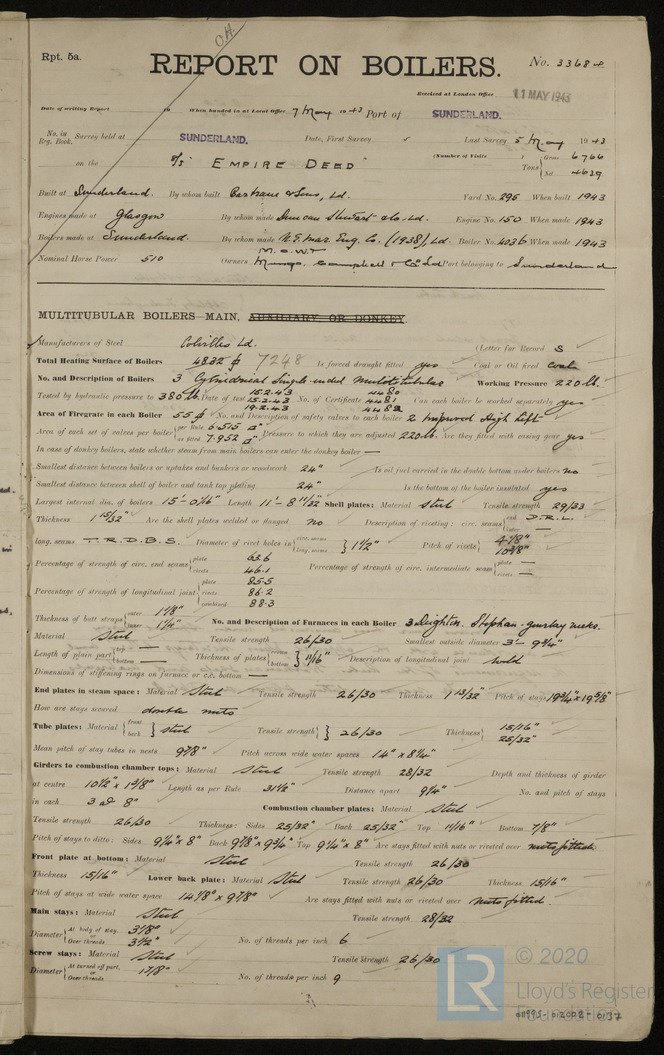 OH.
Rpt. 5a.
REPORT ON BOILERS.
No. 33684
Received at London Office 11 MAY 1943
Date of writing Report 19 When handed in at Local Office 7 May 1943 Port of SUNDERLAND.
No. in Reg. Book. Survey held at SUNDERLAND. Date, First Survey Last Survey 5 May 1943
on the S/S "EMPIRE DEED" (Number of Visits ) Tons Gross 6766 Net 4639
Built at Sunderland. By whom built Bartram & Sons, Ld. Yard No. 295 When built 1943
Engines made at Glasgow By whom made Duncan Stewart & Co. Ld. Engine No. 150 When made 1943
Boilers made at Sunderland. By whom made N.E. Mar. Eng. Co. (1938), Ld. Boiler No. 4036 When made 1943
Nominal Horse Power 510 Owners M.O.W.T Mungo, Campbell & Co Ld Port belonging to Sunderland
MULTITUBULAR BOILERS—MAIN, AUXILIARY OR DONKEY.
Manufacturers of Steel Colvilles Ld. (Letter for Record S
Total Heating Surface of Boilers 4832 7248 Is forced draught fitted yes Coal or Oil fired coal
No. and Description of Boilers 3 Cylindrical Single ended Multitubular Working Pressure 220 lb.
Tested by hydraulic pressure to 380 lb. Date of test 15.2.43 15.2.43 19.2.43 No. of Certificate 4480 4481 4482 Can each boiler be worked separately yes
Area of Firegrate in each Boiler 55 No. and Description of safety valves to each boiler 2 Improved High Lift
Area of each set of valves per boiler per Rule 6.515 as fitted 7.952 Pressure to which they are adjusted 220 lb. Are they fitted with easing gear yes
In case of donkey boilers, state whether steam from main boilers can enter the donkey boiler —
Smallest distance between boilers or uptakes and bunkers or woodwork 24" Is oil fuel carried in the double bottom under boilers no
Smallest distance between shell of boiler and tank top plating 24" Is the bottom of the boiler insulated yes
Largest internal dia. of boilers 15'-0 1/16" Length 11'-8 11/32" Shell plates: Material steel Tensile strength 29/33
Thickness 1 15/32" Are the shell plates welded or flanged no Description of riveting: circ. seams end D.R.L. inter. —
long. seams T.R.D.B.S. Diameter of rivet holes in circ. seams long. seams } 1 1/2" Pitch of rivets 4 1/8" 10 3/8"
Percentage of strength of circ. end seams plate 63.6 rivets 46.1 Percentage of strength of circ. intermediate seam plate — rivets —
Percentage of strength of longitudinal joint plate 85.5 rivets 86.2 combined 88.3
Thickness of butt straps outer 1 1/8" inner 1 1/4" No. and Description of Furnaces in each Boiler 3 Deighton. Stephan-gourlay necks.
Material steel Tensile strength 26/30 Smallest outside diameter 3'-9 3/4"
Length of plain part top — bottom — Thickness of plates crown bottom } 11/16" Description of longitudinal joint weld
Dimensions of stiffening rings on furnace or c.c. bottom —
End plates in steam space: Material steel Tensile strength 26/30 Thickness 1 13/32" Pitch of stays 19 3/4" x 19 5/8"
How are stays secured double nuts
Tube plates: Material front back } steel Tensile strength } 26/30 Thickness 15/16" 25/32"
Mean pitch of stay tubes in nests 9 7/8" Pitch across wide water spaces 14" x 8 1/4"
Girders to combustion chamber tops: Material steel Tensile strength 28/32 Depth and thickness of girder
at centre 10 1/2" x 1 3/8" Length as per Rule 31 1/2" Distance apart 9 1/4" No. and pitch of stays
in each 3 at 8" Combustion chamber plates: Material steel
Tensile strength 26/30 Thickness: Sides 25/32" Back 25/32" Top 11/16" Bottom 7/8"
Pitch of stays to ditto: Sides 9 1/4" x 8" Back 9 7/8" x 9 3/4" Top 9 1/4" x 8" Are stays fitted with nuts or riveted over nuts fitted
Front plate at bottom: Material steel Tensile strength 26/30
Thickness 15/16" Lower back plate: Material steel Tensile strength 26/30 Thickness 15/16"
Pitch of stays at wide water space 14 1/8" x 9 7/8" Are stays fitted with nuts or riveted over nuts fitted.
Main stays: Material steel Tensile strength 28/32
Diameter At body of stay, 3 1/8" or Over threads 3 1/2" No. of threads per inch 6
Screw stays: Material steel Tensile strength 26/30
Diameter At turned off part, or Over threads 1 7/8" No. of threads per inch 9
© 2020
LR Lloyd's Register Foundation
011995-012002-0137